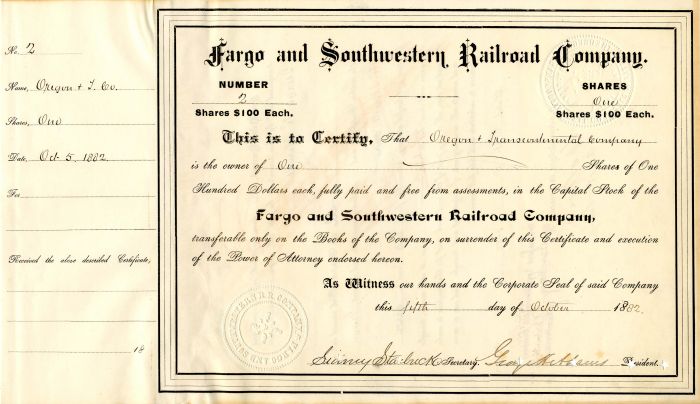 No. 2
Name, Oregon & T. Co.
Shares, One
Date, Oct 5, 1882.
For
Received the above described Certificate,
18
Fargo and Southwestern Railroad Company.
NUMBER
2
Shares $100 Each.
SHARES
One
Shares $100 Each.
This is to Certify, That Oregon & Transcontinental Company
is the owner of One Shares of One
Hundred Dollars each, fully paid and free from assessments, in the Capital Stock of the
Fargo and Southwestern Railroad Company,
transferable only on the Books of the Company, on surrender of this Certificate and execution
of the Power of Attorney endorsed hereon.
As Witness our hands and the Corporate Seal of said Company
this fifth day of October 1882.
Secretary. President.